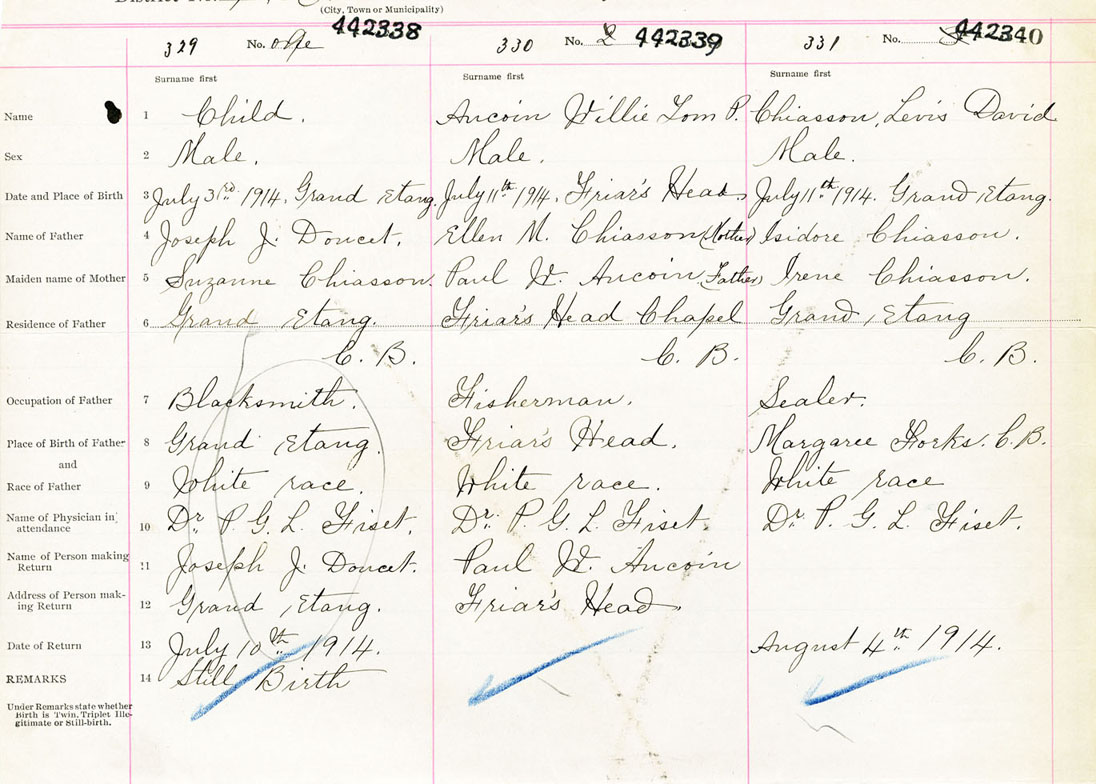 (City, Town or Municipality)
329 No. one 442338 330 No. 2 442339 331 No. 442340
Surname first Surname first Surname first
Name 1 Child. Aucoin Willie Tom P. Chiasson, Levis David
Sex 2 Male. Male. Male.
Date and Place of Birth 3 July 3rd. 1914. Grand Etang. July 11th 1914. Friar's Head. July 11th 1914. Grand Etang.
Name of Father 4 Joseph J. Doucet. Ellen M. Chiasson (Mother) Isidore Chiasson.
Maiden name of Mother 5 Suzanne Chiasson. Paul W. Aucoin (Father) Irene Chiasson.
Residence of Father 6 Grand Etang. Friar's Head Chapel Grand Etang
C. B. C. B. C. B.
Occupation of Father 7 Blacksmith. Fisherman. Sealer.
Place of Birth of Father 8 Grand Etang. Friar's Head. Margaree Forks. C. B.
and
Race of Father 9 White race. White race. White race
Name of Physician in attendance 10 Dr. P. G. L. Fiset. Dr. P. G. L. Fiset. Dr. P. G. L. Fiset.
Name of Person making Return 11 Joseph J. Doucet. Paul W. Aucoin
Address of Person making Return 12 Grand Etang. Friar's Head.
Date of Return 13 July 10th 1914. August 4th 1914.
REMARKS 14 Still Birth
Under Remarks state whether
Birth is Twin, Triplet Ille-
gitimate or Still-birth.